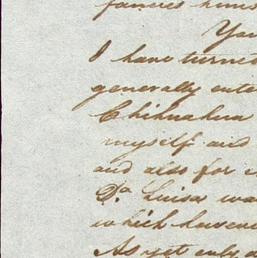 fancies hims
You
I have turned
generally ente
Chihuahua
myself and
and also for
Da. Luisa wa
which however
As yet only a